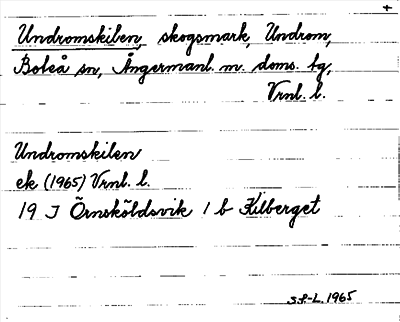 +
Undromskilen, skogsmark, Undrom,
Boteå sn, Ångermanl. m. doms. tg,
Vrnl. l.
Undromskilen
ek (1965) Vrnl. l.
19 J Örnsköldsvik 1 b Kilberget
S.P-L. 1965